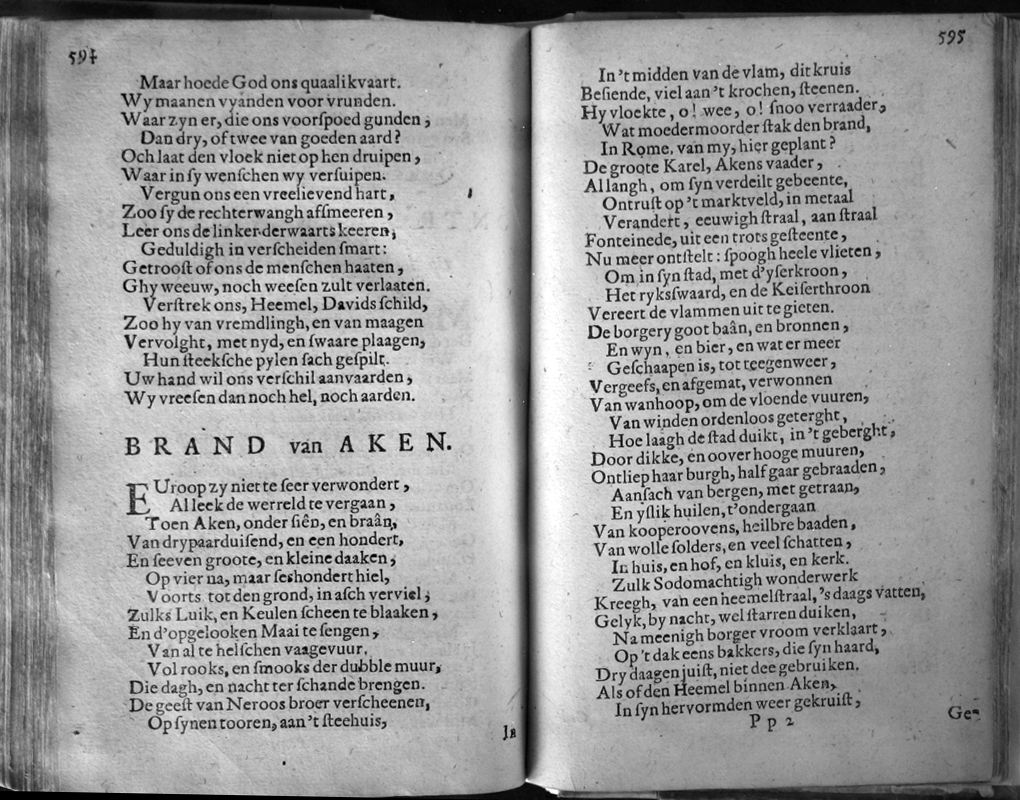 594
Maar hoede God ons quaalikvaart.
Wy maanen vyanden voor vrunden.
Waar zyn er, die ons voorſpoed gunden,
Dan dry, of twee van goeden aard?
Och laat den vloek niet op hen druipen,
Waar in ſy wenſchen wy verſuipen.
Vergun ons een vreelievend hart,
Zoo ſy de rechterwangh afſmeeren,
Leer ons de linker derwaarts keeren,
Geduldigh in verſcheiden ſmart:
Getrooſt of ons de menſchen haaten,
Ghy weeuw, noch weeſen zult verlaaten.
Verſtrek ons, Heemel, Davids ſchild,
Zoo hy van vremdlingh, en van maagen
Vervolght, met nyd, en ſwaare plaagen,
Hun ſteekſche pylen ſach geſpilt.
Uw hand wil ons verſchil aanvaarden,
Wy vreeſen dan noch hel, noch aarden.
BRAND van AKEN.
EUroop zy niet te ſeer verwondert,
Al leek de werreld te vergaan,
Toen Aken, onder ſiên, en braân,
Van drypaarduiſend, en een hondert,
En ſeeven groote, en kleine daaken,
Op vier na, maar ſeshondert hiel,
Voorts tot den grond, in aſch verviel,
Zulks Luik, en Keulen ſcheen te blaaken,
En d'opgelooken Maai te ſengen,
Van al te helſchen vaagevuur.
Vol rooks, en ſmooks der dubble muur,
Die dagh, en nacht ter ſchande brengen.
De geeſt van Neroos broer verſcheenen,
Op ſynen tooren, aan 't ſteehuis,
In
595
In 't midden van de vlam, dit kruis
Beſiende, viel aan 't krochen, ſteenen.
Hy vloekte, o! wee, o! ſnoo verraader,
Wat moedermoorder ſtak den brand,
In Rome, van my, hier geplant?
De groote Karel, Akens vaader,
Al langh, om ſyn verdeilt gebeente,
Ontruſt op 't marktveld, in metaal
Verandert, eeuwigh ſtraal, aan ſtraal
Fonteinede, uit een trots geſteente,
Nu meer ontſtelt: ſpoogh heele vlieten,
Om in ſyn ſtad, met d'yſerkroon,
Het ryksſwaard, en de Keiſerthroon
Vereert de vlammen uit te gieten.
De borgery goot baân, en bronnen,
En wyn, en bier, en wat er meer
Geſchaapen is, tot teegenweer,
Vergeefs, en afgemat, verwonnen
Van wanhoop, om de vloende vuuren,
Van winden ordenloos geterght,
Hoe laagh de ſtad duikt, in 't geberght,
Door dikke, en oover hooge muuren,
Ontliep haar burgh, half gaar gebraaden,
Aanſach van bergen, met getraan,
En yſlik huilen, t'ondergaan
Van kooperoovens, heilbre baaden,
Van wolle ſolders, en veel ſchatten,
In huis, en hof, en kluis, en kerk.
Zulk Sodomachtigh wonderwerk
Kreegh, van een heemelſtraal, 's daags vatten,
Gelyk, by nacht, wel ſtarren duiken,
Na meenigh borger vroom verklaart,
Op 't dak eens bakkers, die ſyn haard,
Dry daagen juiſt, niet dee gebruiken.
Als of den Heemel binnen Aken,
In ſyn hervormden weer gekruiſt,
P p 2
Ge-